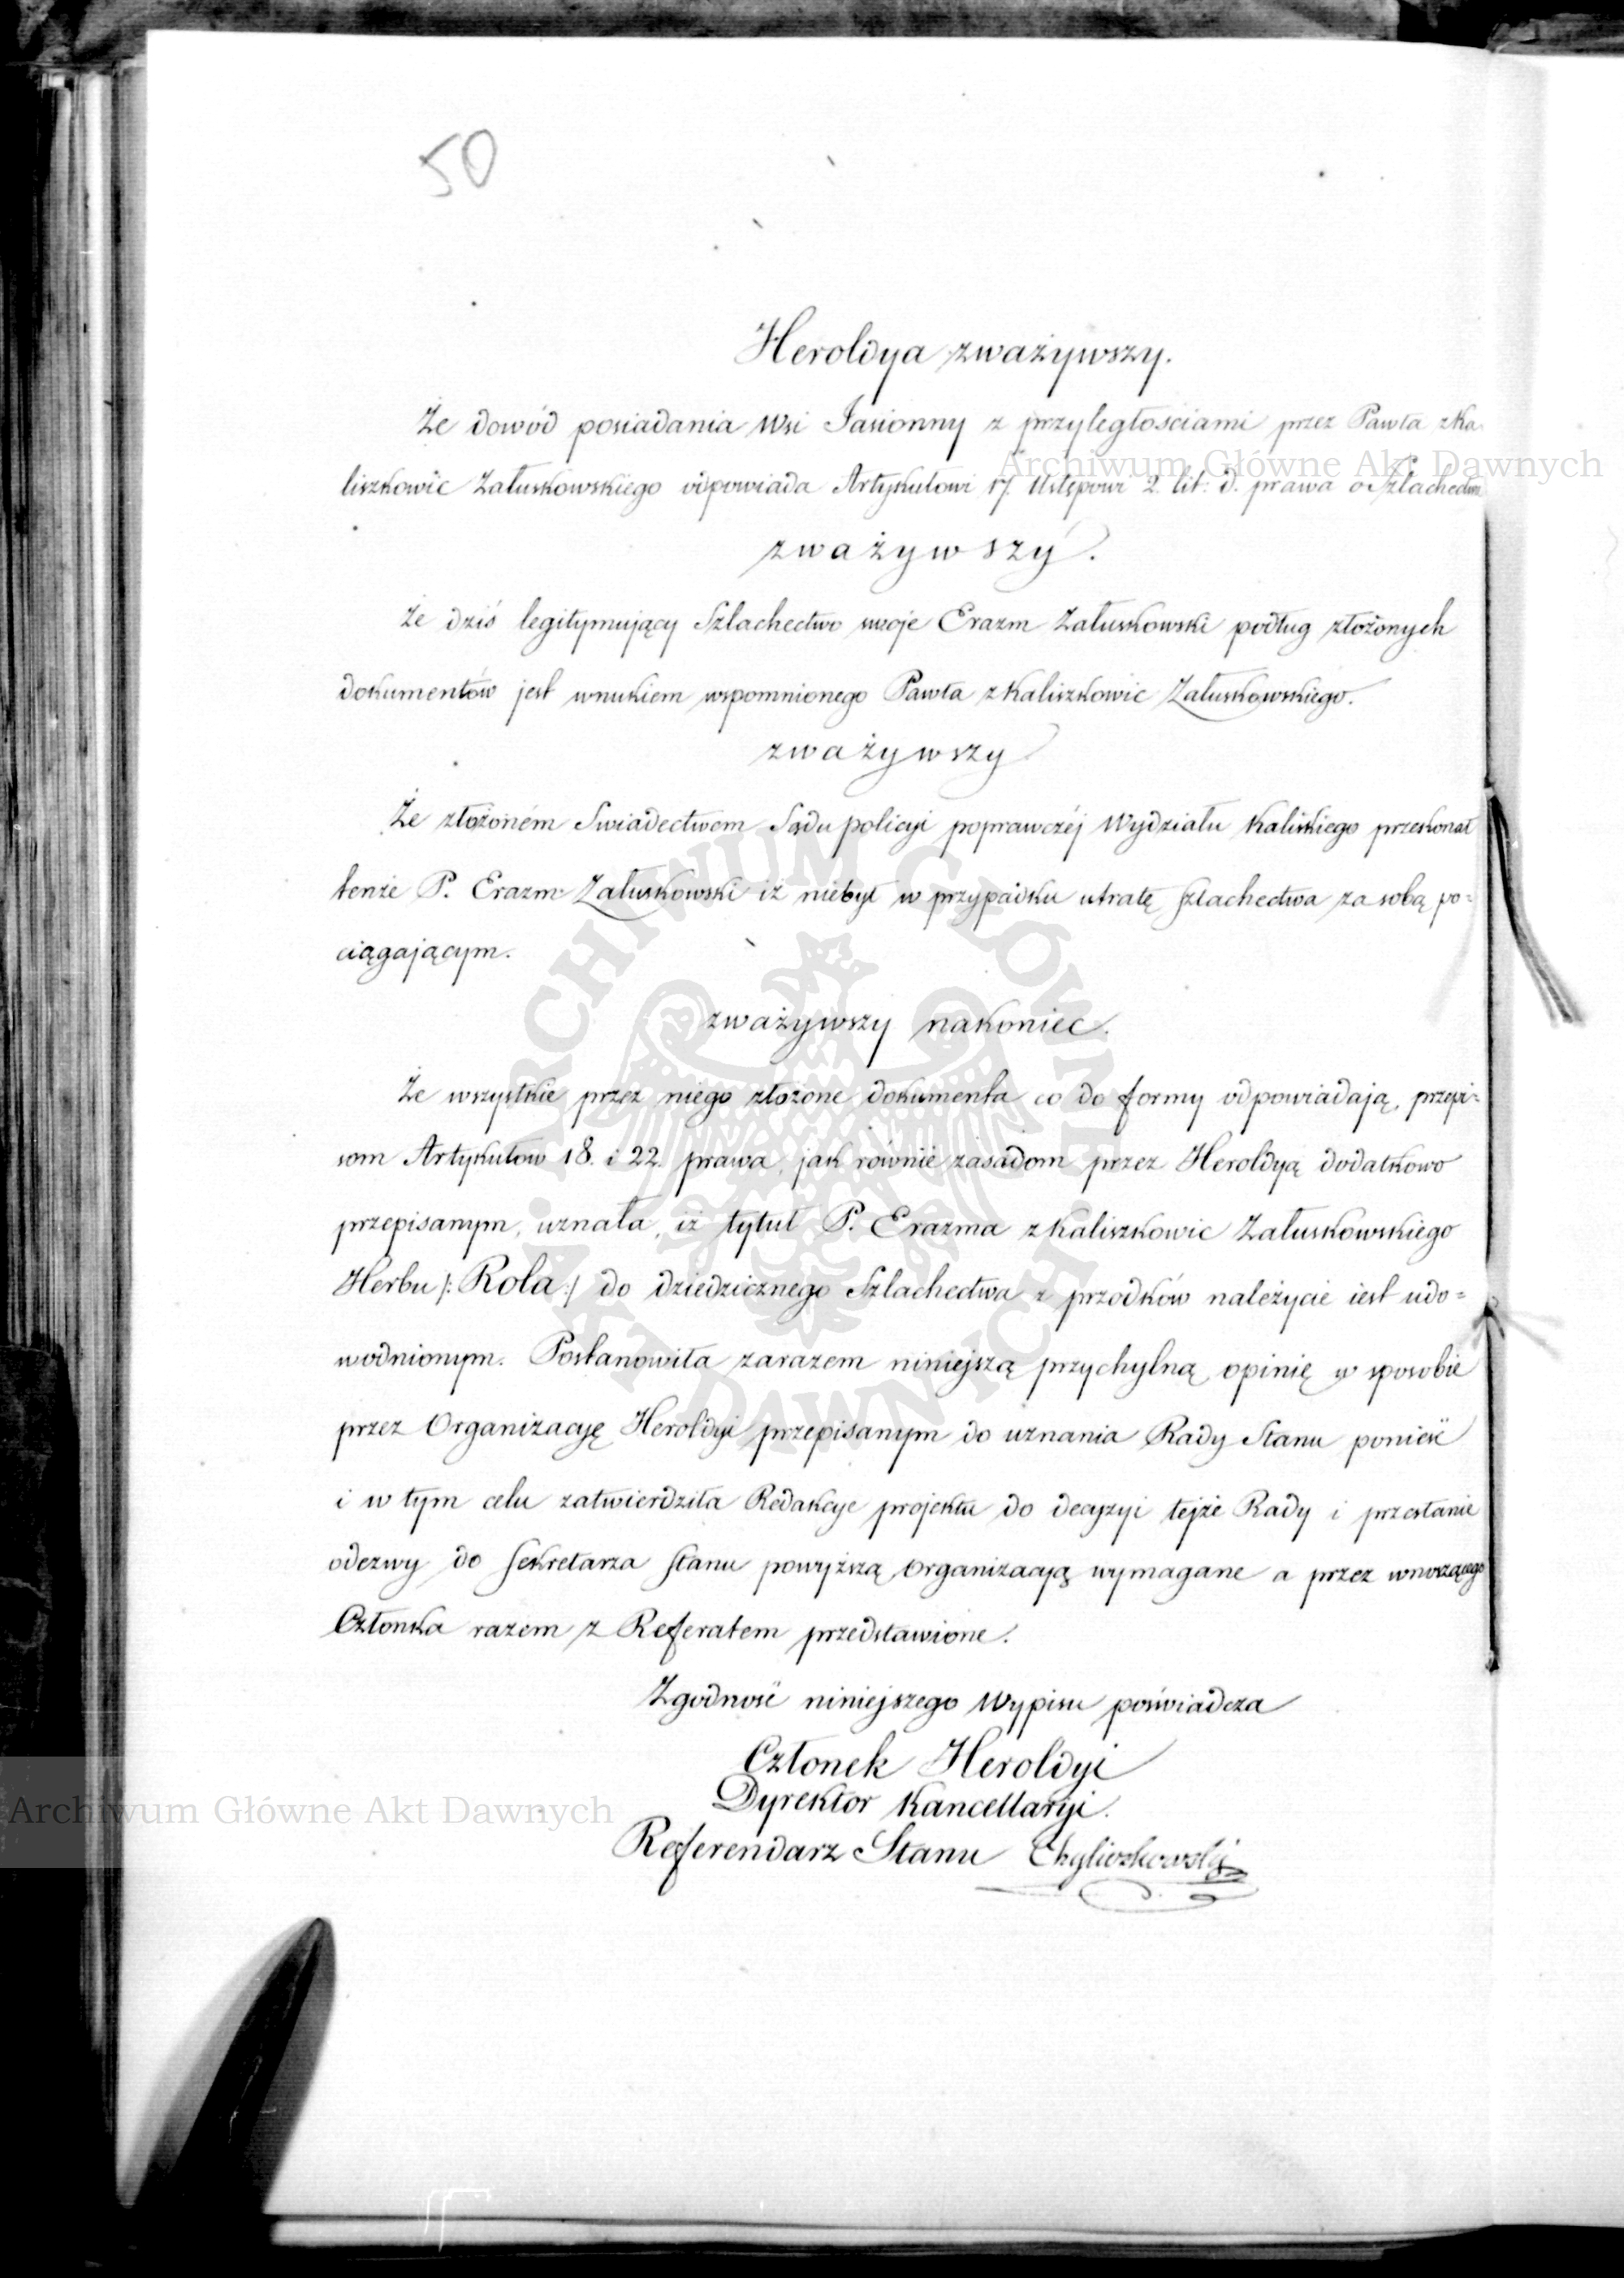 50
Heroldya zważywszy.
Że dowód posiadania Wsi Jasionny z przyległościami przez Pawła z Ka
liszkowic Załuskowskiego odpowiada Artykułowi 17. Ustępowi 2. lit: d. prawa o Szlachectwie
zważywszy.
Że dziś legitymujący Szlachectwo swoje Erazm Załuskowski podług złożonych
dokumentów jest wnukiem wspomnionego Pawła z Kaliszkowic Załuskowskiego.
zważywszy
Że złożoném Swiadectwem Sądu policyi poprawczéj Wydziału Kaliskiego przekonał
tenże P. Erazm Załuskowski iż niebył w przypadku utratę szlachectwa za sobą po=
ciągającym.
zważywszy nakoniec.
Że wszystkie przez niego złożone dokumenta co do formy odpowiadają przepi=
som Artykułów 18. i 22. prawa, jak równie zasadom przez Heroldyą dodatkowo
przepisanym, uznała, iż tytuł P. Erazma z Kaliszkowic Załuskowskiego
Herbu /: Rola :/ do dziedzicznego Szlachectwa z przodków należycie iest udo=
wodnionym. Postanowiła zarazem niniejszą przychylną opinię w sposobie
przez Organizacyę Heroldyi przepisanym do uznania Rady Stanu ponieść
i w tym celu zatwierdziła Redakcye projektu do decyzyi tejże Rady i przesłanie
odezwy do Sekretarza Stanu powyższą Organizacyą wymagane a przez wnoszącego
Członka razem z Referatem przedstawione.
Zgodność niniejszego Wypisu poświadcza
Członek Heroldyi
Dyrektor Kancellaryi.
Referendarz Stanu Chyliczkowski
Archiwum Główne Akt Dawnych
Archiwum Główne Akt Dawnych
ARCHIWUM GŁÓWNE AKT DAWNYCH